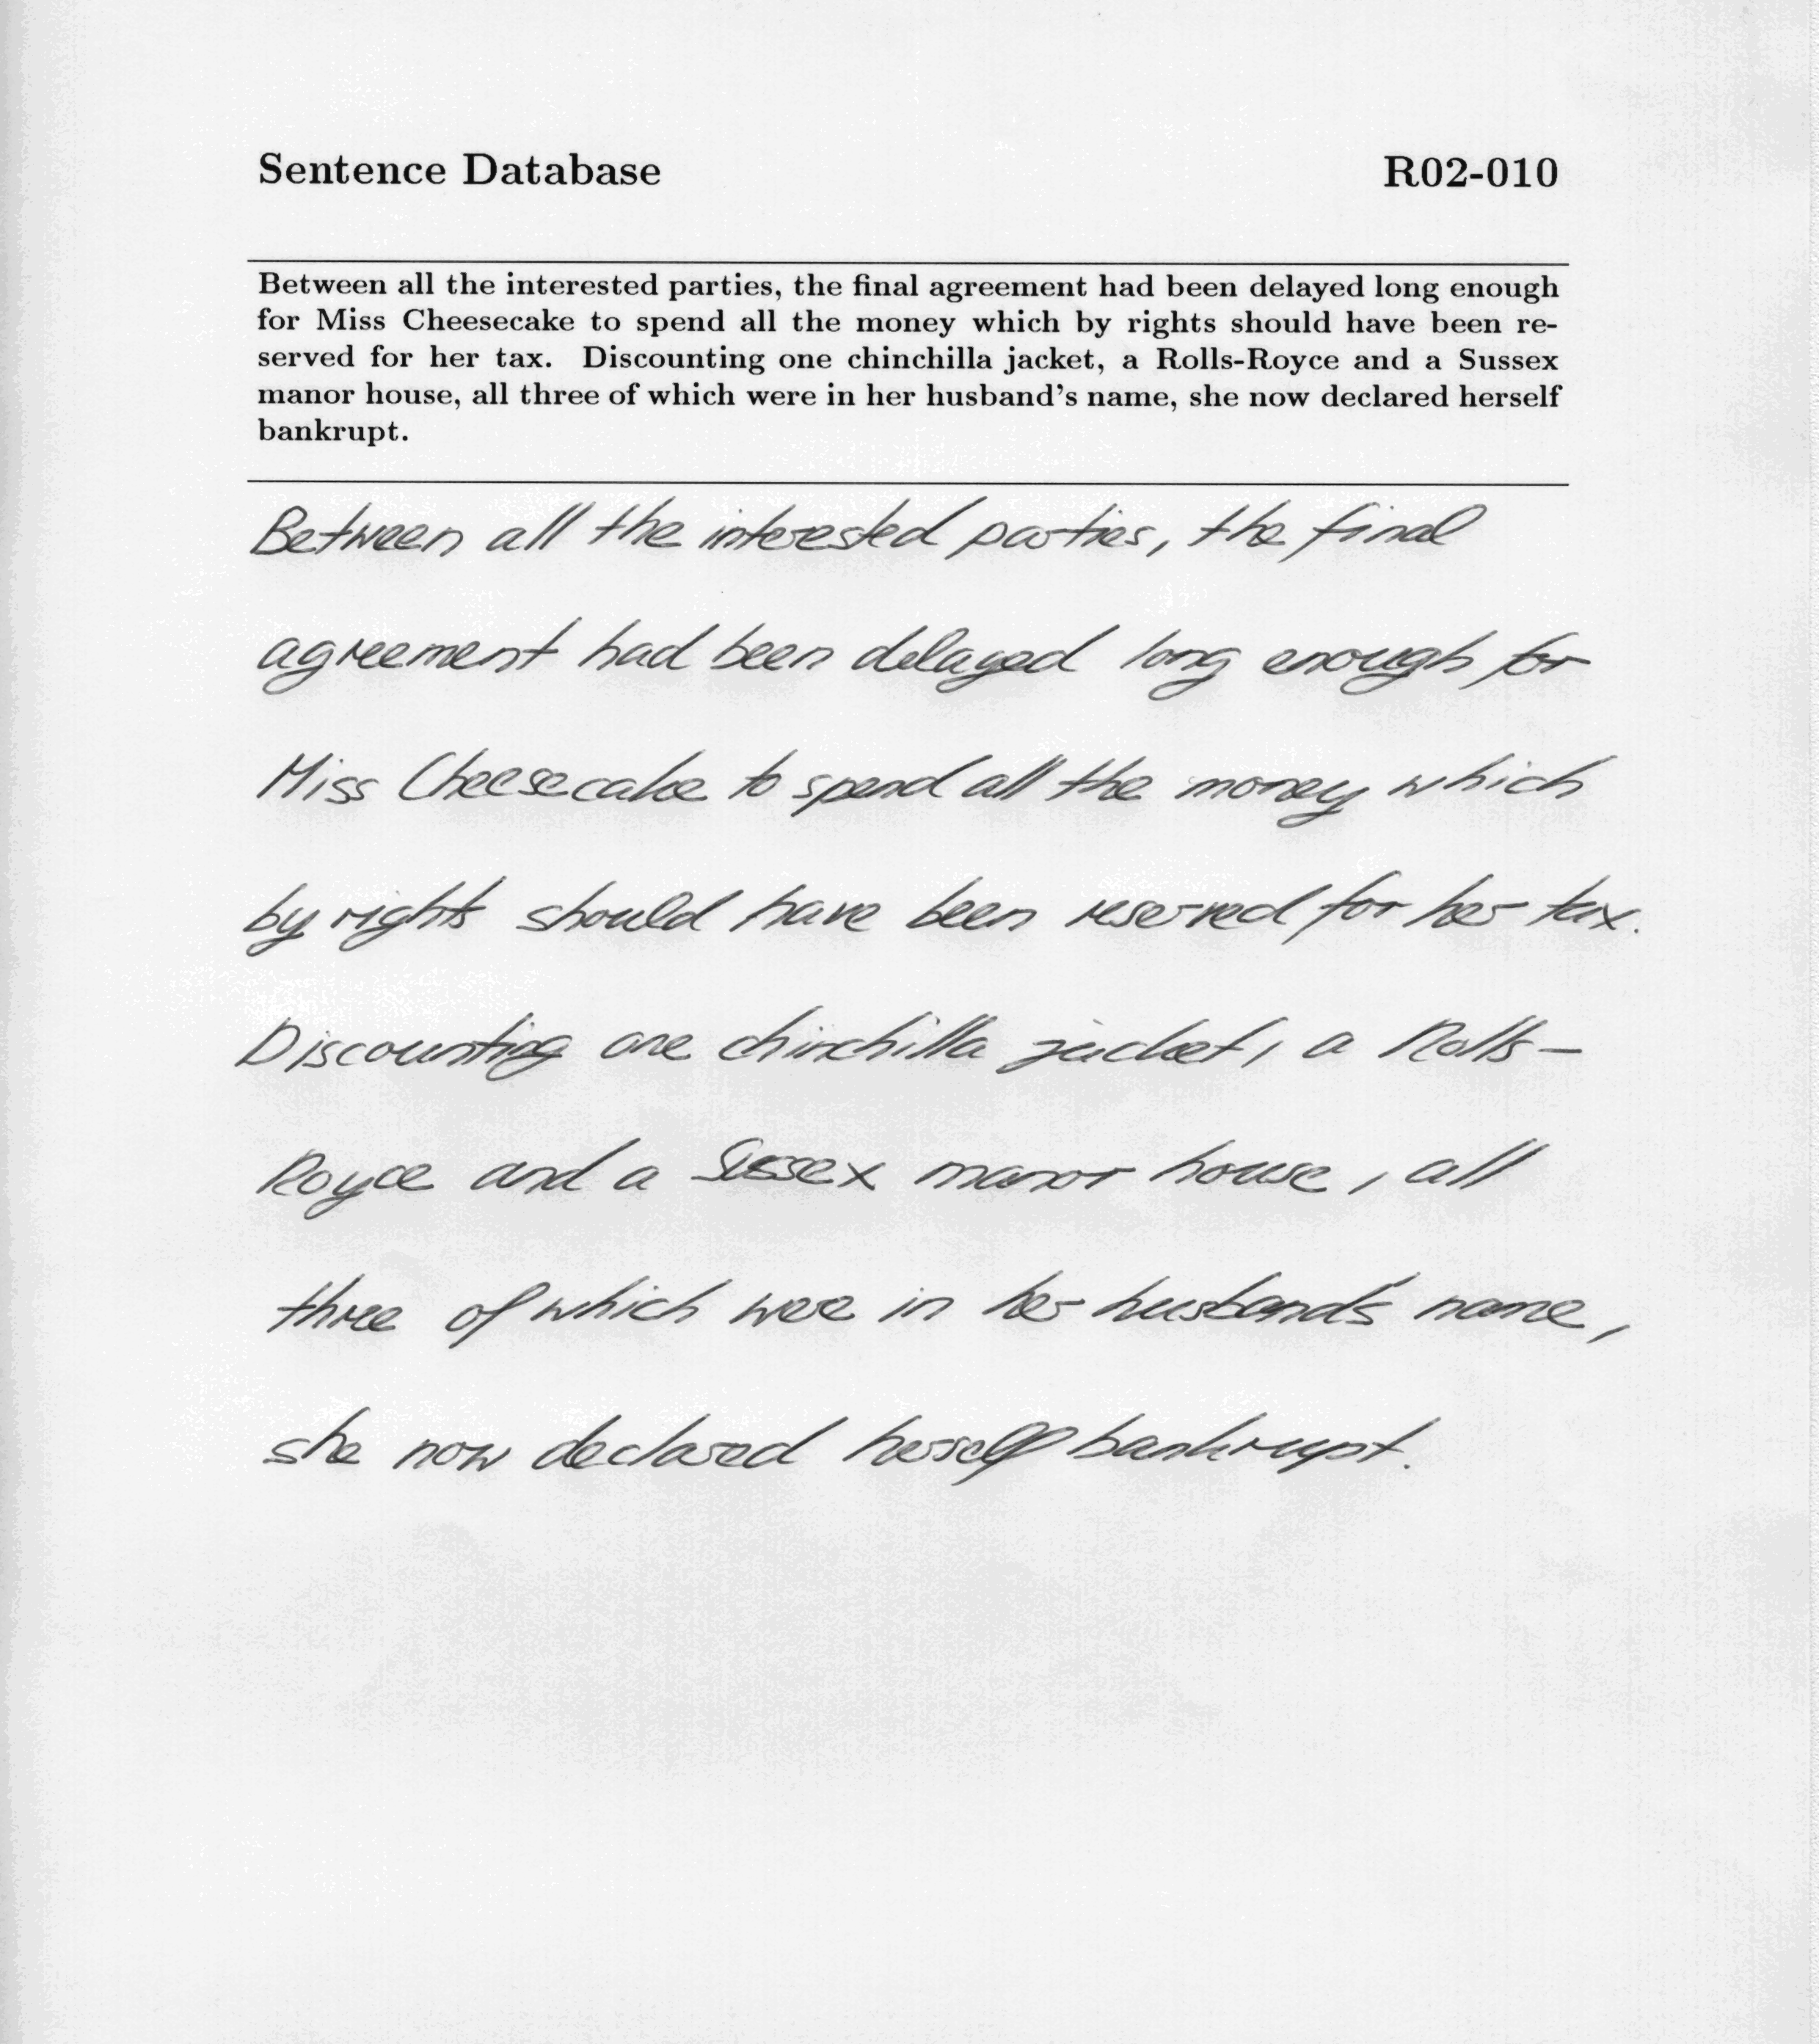 Sentence Database R02-010
Between all the interested parties, the final agreement had been delayed long enough
for Miss Cheesecake to spend all the money which by rights should have been re-
served for her tax. Discounting one chinchilla jacket, a Rolls-Royce and a Sussex
manor house, all three of which were in her husband's name, she now declared herself
bankrupt.
Between all the interested parties, the final
agreement had been delayed long enough for
Miss Cheesecake to spend all the money which
by rights should have been reserved for her tax.
Discounting one chinchilla jacket, a Rolls-
Royce and a Sussex manor house, all
three of which were in her husband's name,
she now declared herself bankrupt.